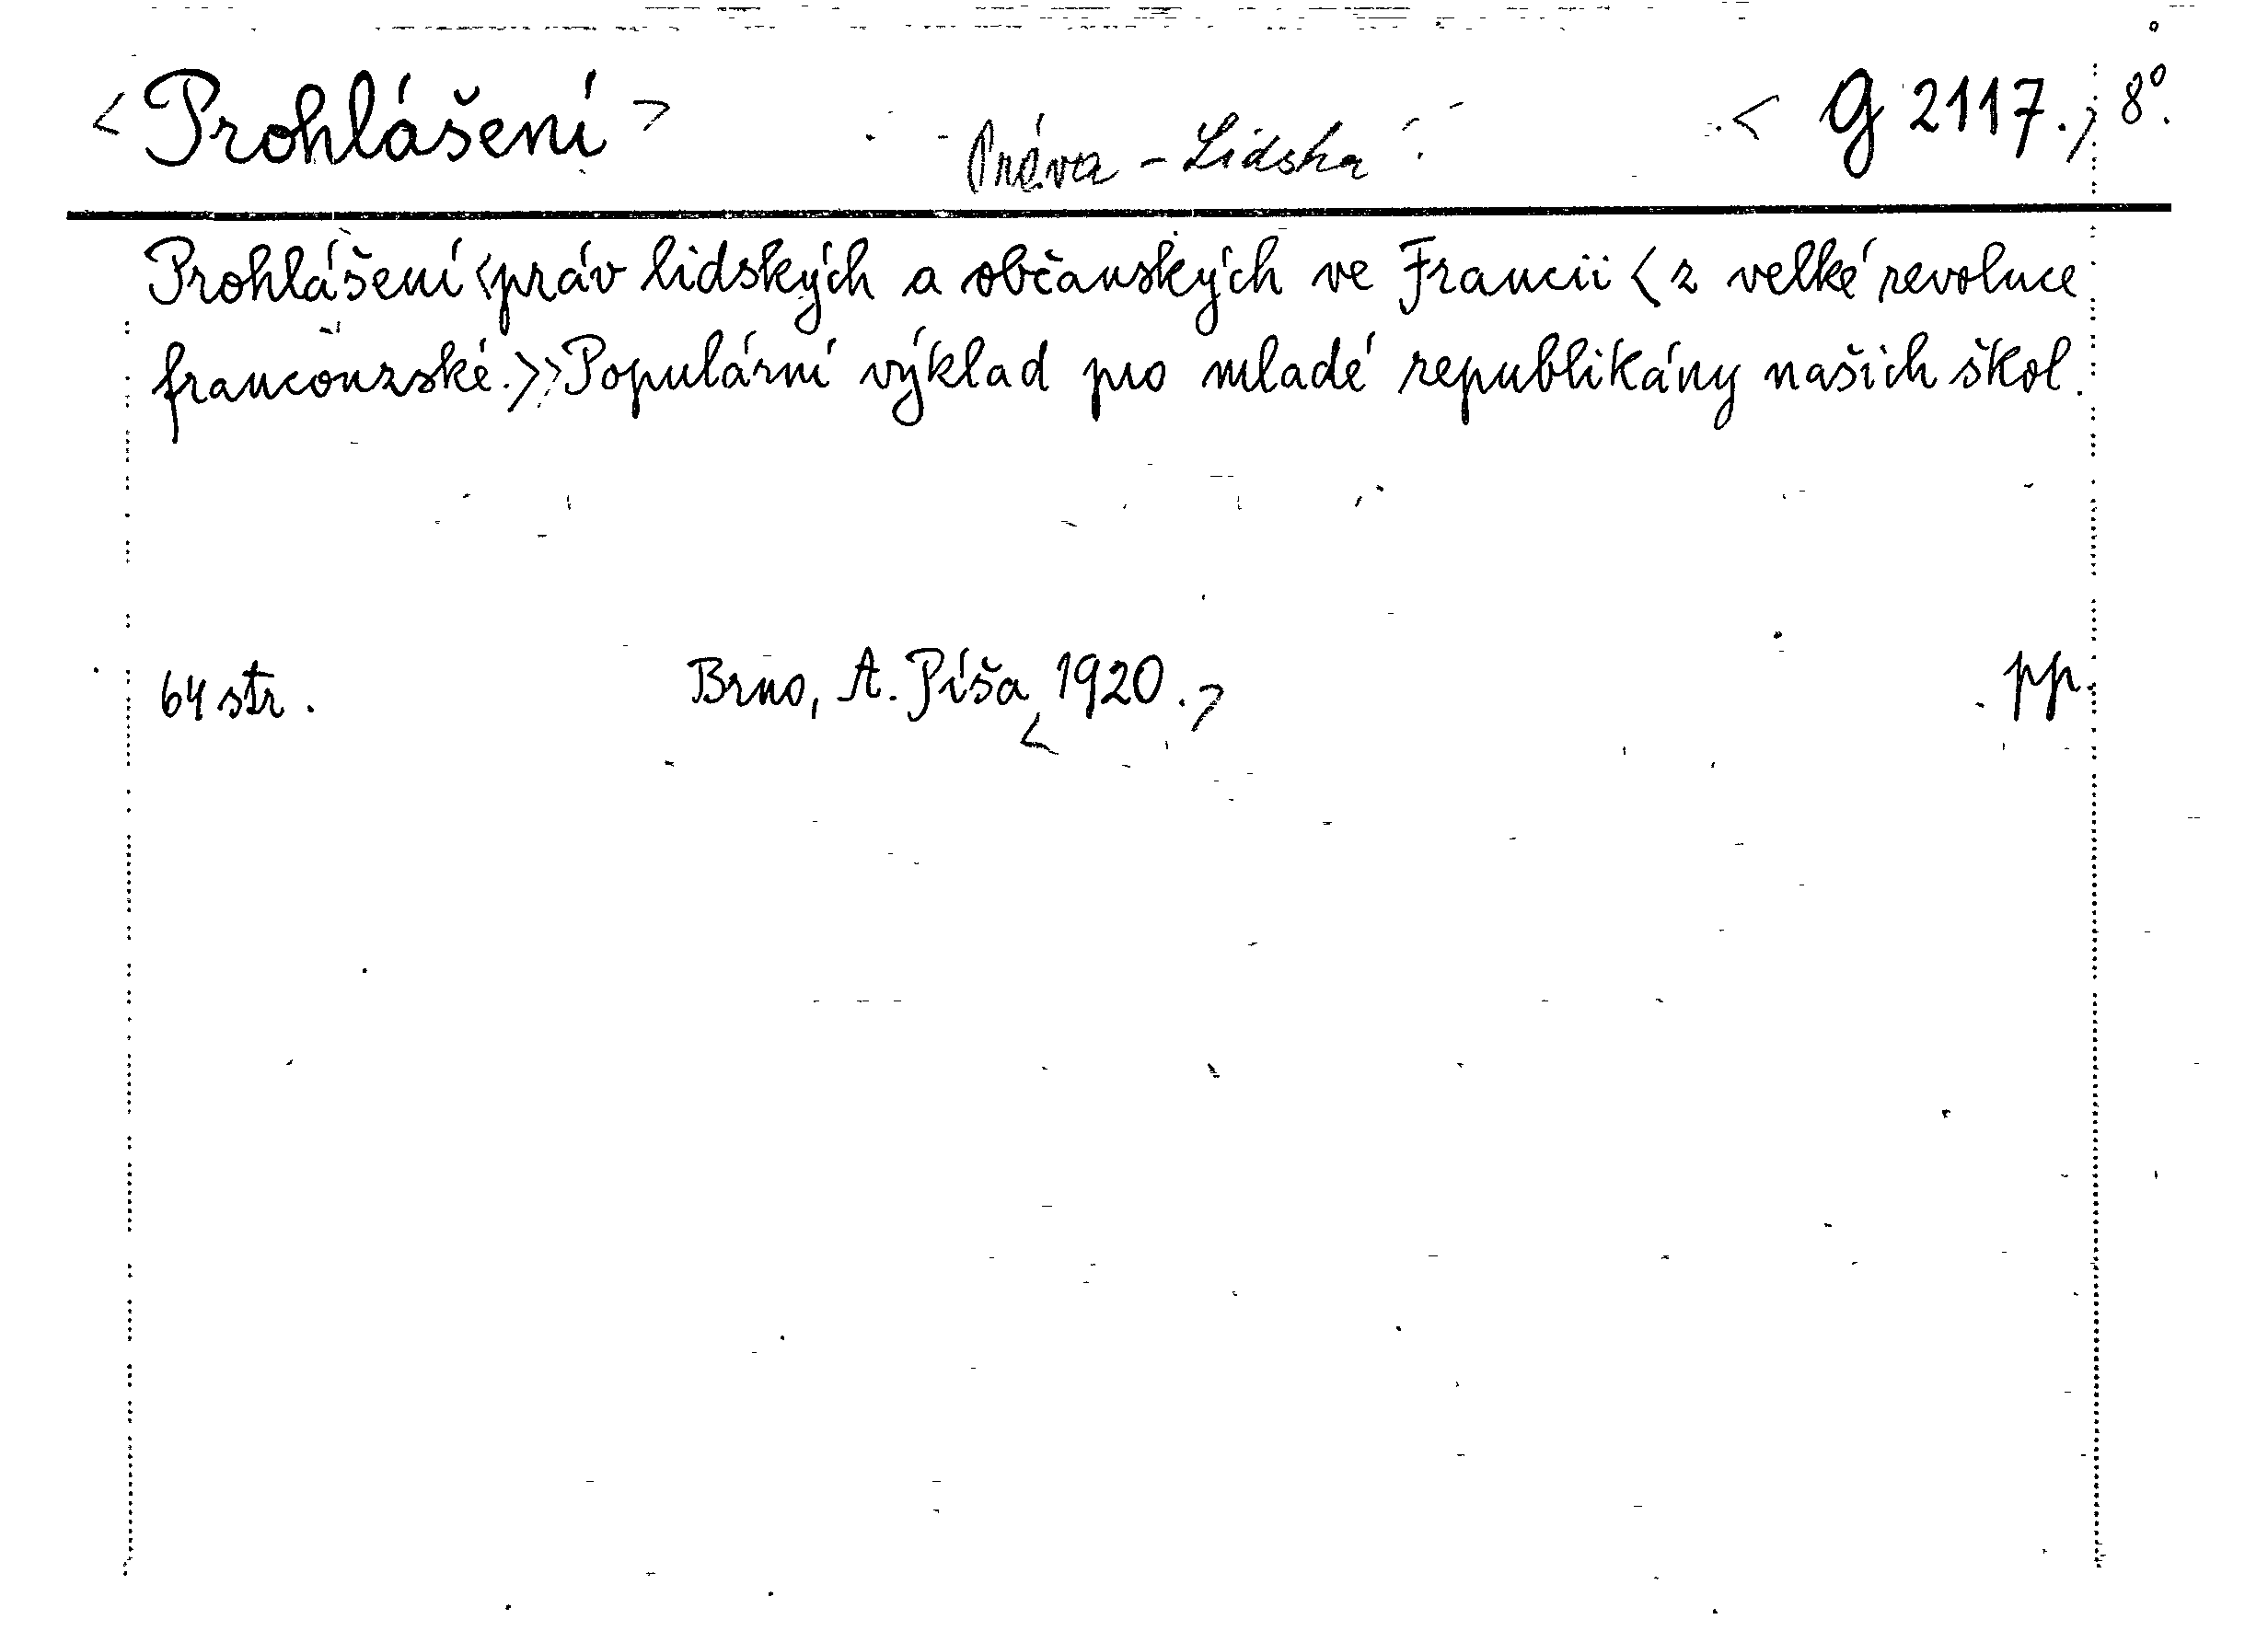 <Prohlášení> Práva - Lidska < G 2117.> 8°.
Prohlášení <práv lidských a občanských ve Francii <z velké revoluce
francouzské.>> Populární výklad pro mladé republikány našich škol.
64 str. Brno, A. Píša < 1920.> pp.